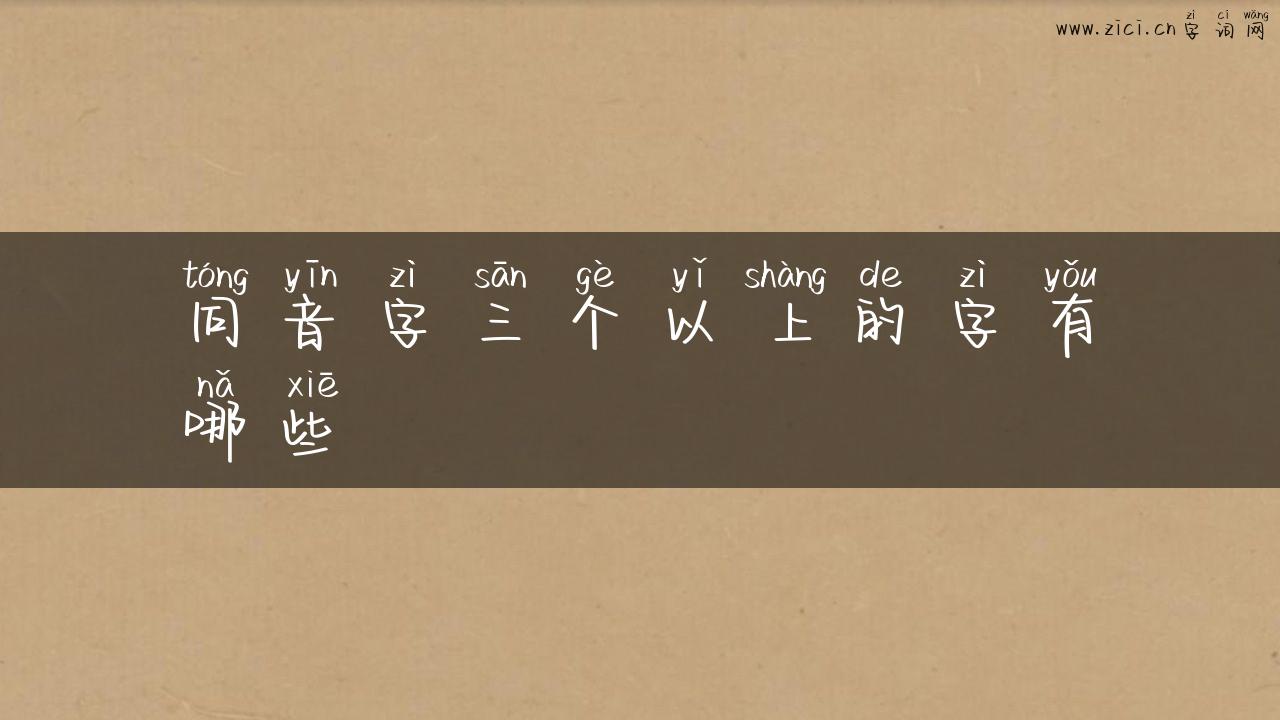 zì cí wǎng
www.zici.cn 字词网
tóng yīn zì sān gè yǐ shàng de zì yǒu
同音字三个以上的字有
nǎ xiē
哪些